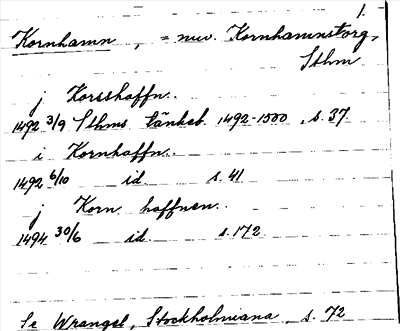 1.
Kornhamn, = nuv. Kornhamnstorg,
Sthm
j Korsshaffn.
1492 3/9 Sthms tänkeb. 1492-1500, s. 37
i Kornhaffn.
1492 6/10 id. s. 41
j Korn haffnen.
1494 30/6 id. s. 172
Se Wrangel, Stockholmiana s. 72